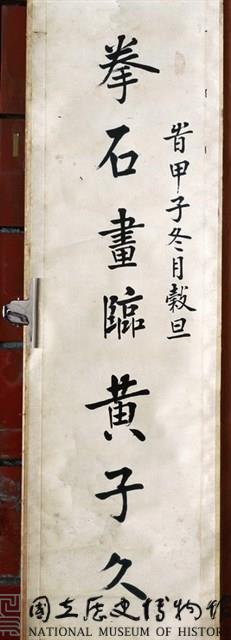 旹甲子冬月穀旦
拳石畫臨黃子久
國立歷史博物館
NATIONAL MUSEUM OF HISTOR